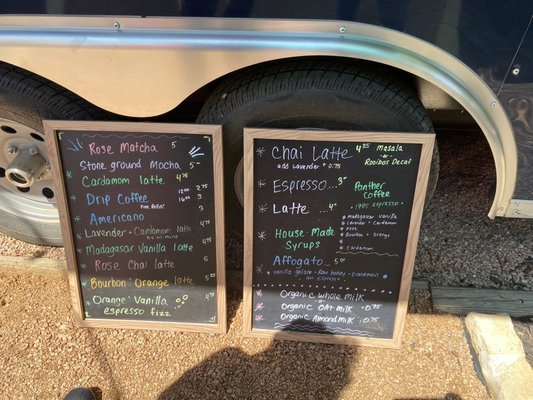 Rose Matcha 5
Stone ground Mocha 5
Cardamom latte 4.75
Drip Coffee 12 oz 2.75
16 oz 3
Free Refill!
Americano 3
Lavender + Cardamom latte
Madagasgar Vanilla latte 4.75
Rose Chai latte 5
Bourbon + Orange latte 4.75
Orange + Vanilla
espresso fizz 4.75
Chai Latte 4.25 Masala
-or-
Rooibos Decaf
add lavender + 0.75
Espresso... 3
Latte ...4
House Made
Syrups
Panther
Coffee
1985 espresso
madagasgar vanilla
Lavender + cardamom
Rose
Bourbon + Orange
Cardamom
Affogato... 5
vanilla gelato - Raw honey - cinnamon
Organic Whole milk
Organic Oat milk +0.75
Organic Almond milk +0.75